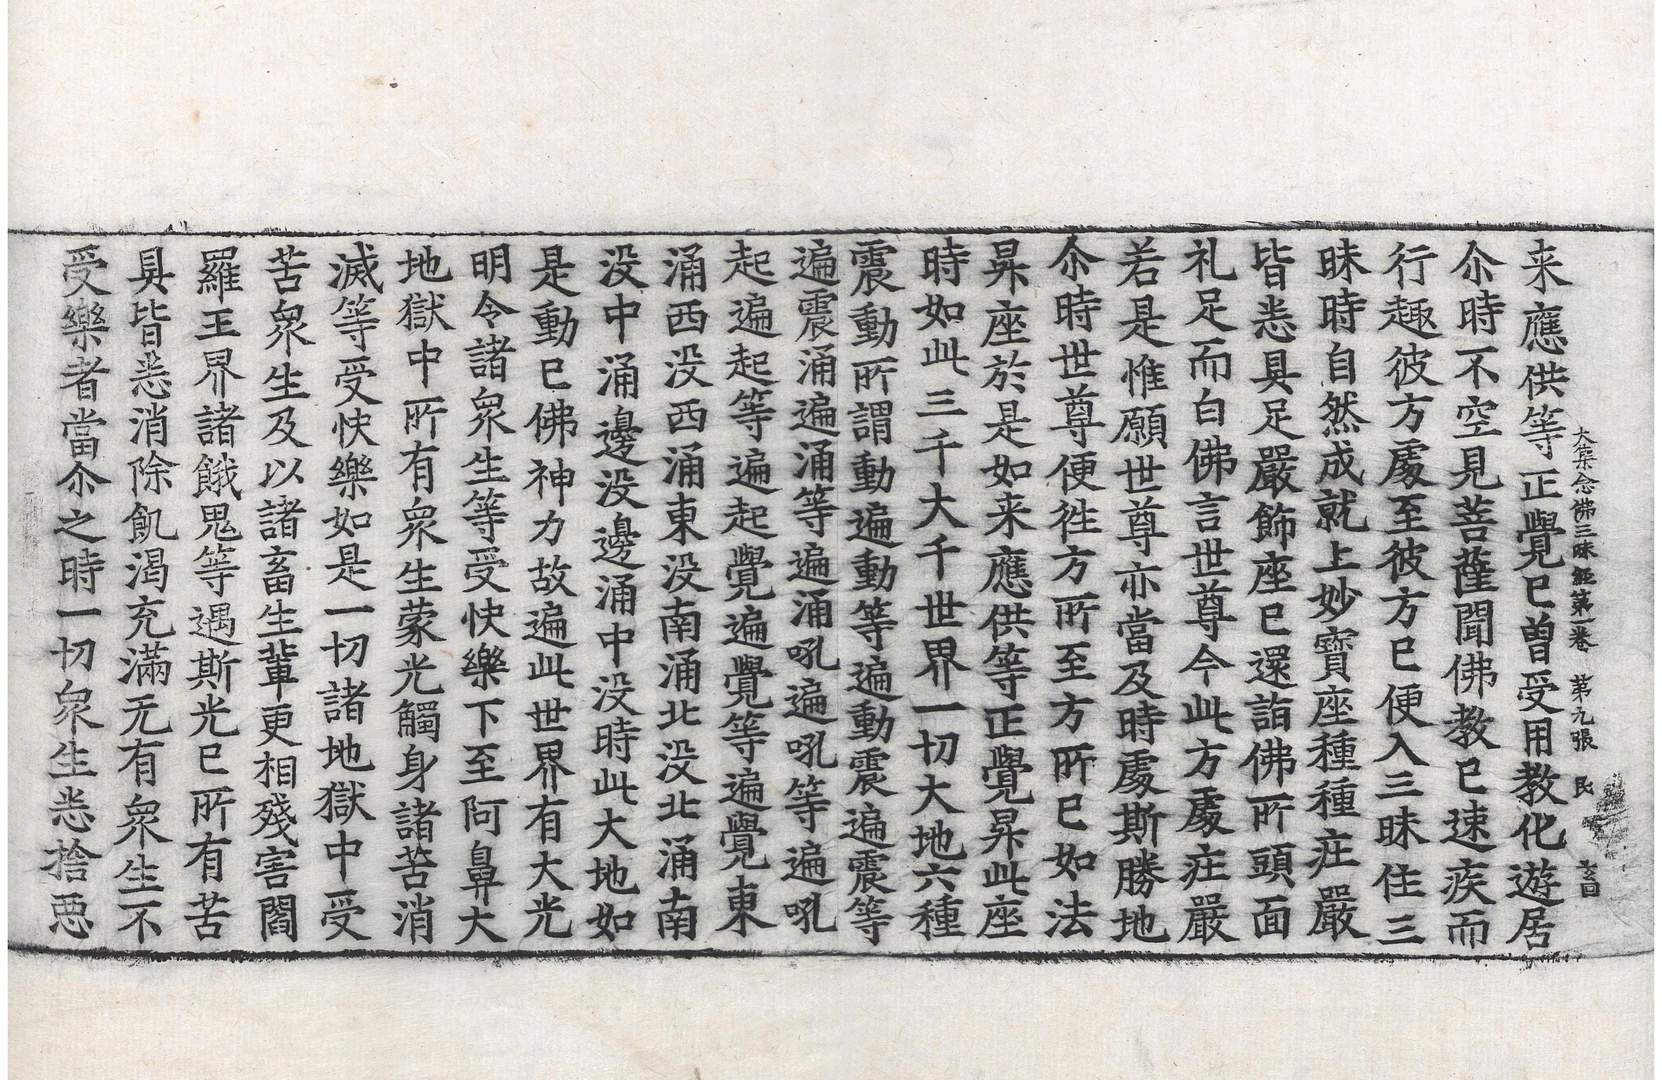 大集念佛三昧經第一卷 第九張 民
来應供等正覺已曾受用教化遊居
尒時不空見菩薩聞佛教已速疾而
行趣彼方處至彼方已便入三昧住三
昧時自然成就上妙寶座種種庄嚴
皆悉具足嚴飾座已還詣佛所頭面
礼足而白佛言世尊今此方處庄嚴
若是惟願世尊亦當及時處斯勝地
尒時世尊便徃方所至方所已如法
昇座於是如来應供等正覺昇此座
時如此三千大千世界一切大地六種
震動所謂動遍動等遍動震遍震等
遍震涌遍涌等遍涌吼遍吼等遍吼
起遍起等遍起覺遍覺等遍覺東
涌西没西涌東没南涌北没北涌南
没中涌邊没邊涌中没時此大地如
是動已佛神力故遍此世界有大光
明令諸衆生等受快樂下至阿鼻大
地獄中所有衆生蒙光觸身諸苦消
滅等受快樂如是一切諸地獄中受
苦衆生及以諸畜生輩更相殘害閻
羅王界諸餓鬼等遇斯光已所有苦
具皆悉消除飢渴充滿无有衆生不
受樂者當尒之時一切衆生悉捨惡